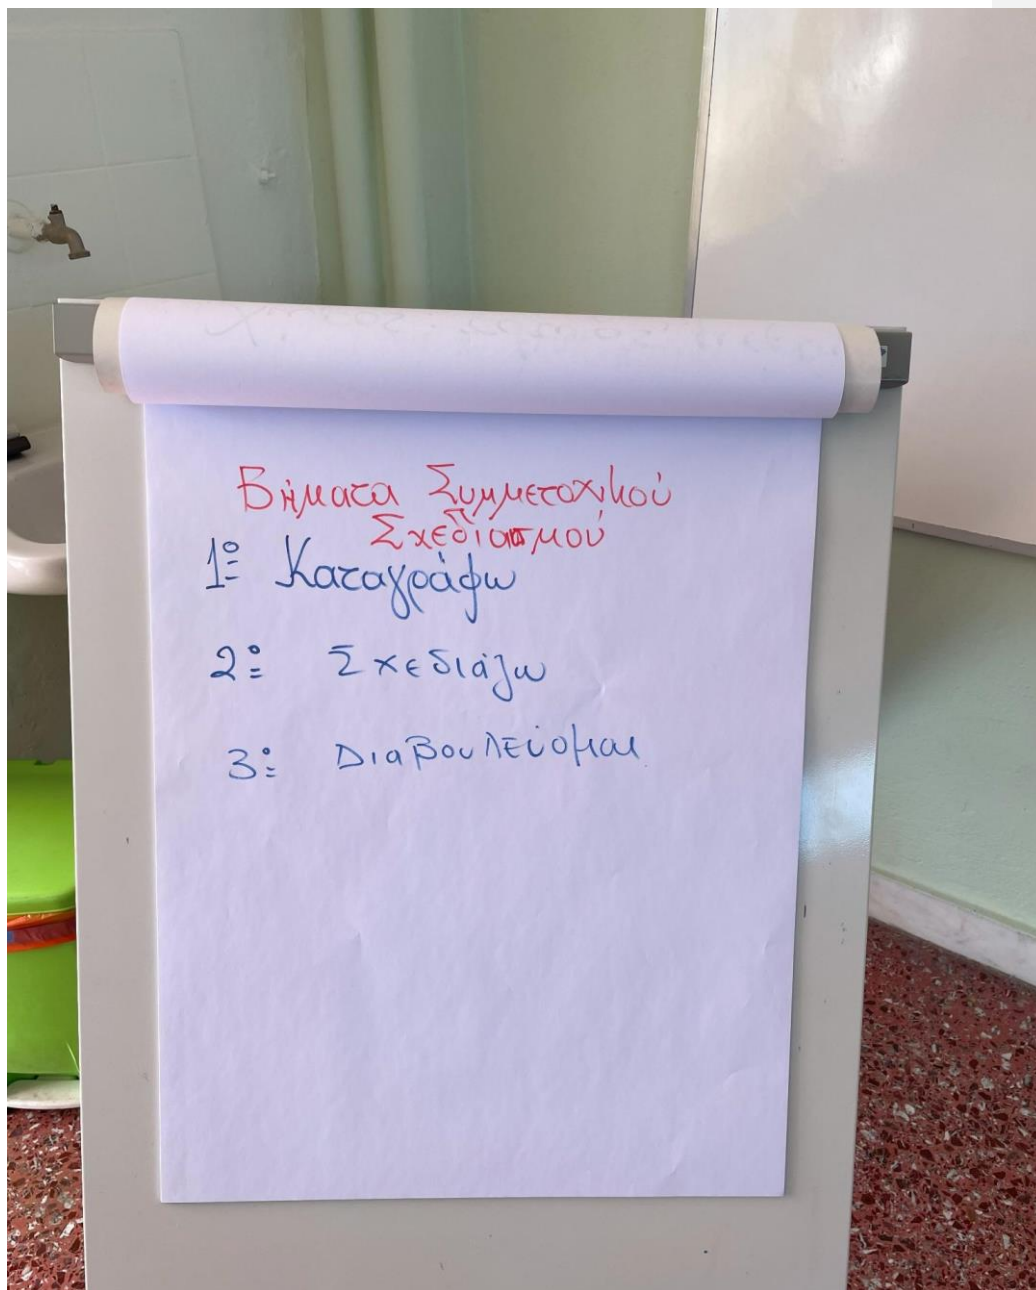 Βήματα Συμμετοχικού
Σχεδιασμού
1º Καταγράφω
2º Σχεδιάζω
3º Διαβουλεύομαι